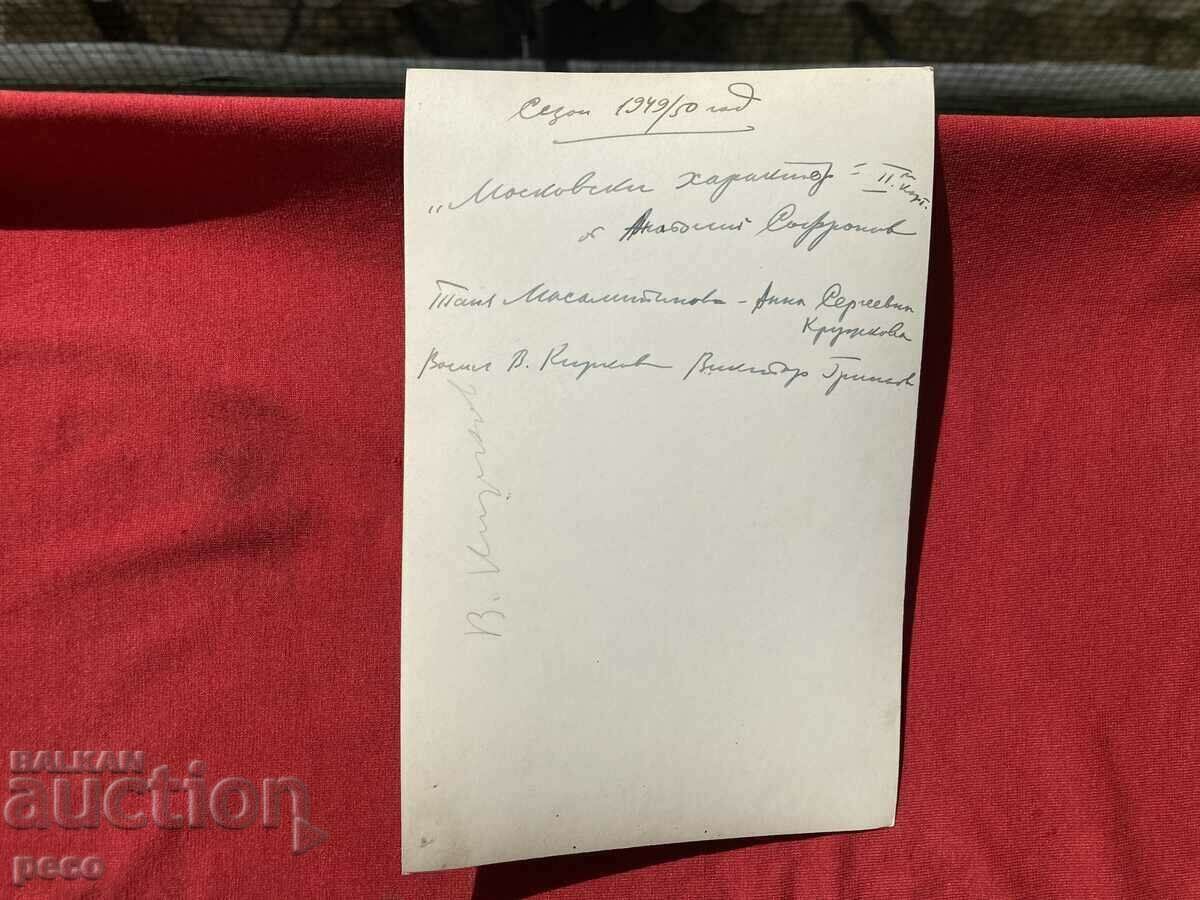 Сезон 1949/50 год
„Московски характер = II. к.
карт.
от Анатолий Софронов
Таня Масалитинова - Анна Сергеевна
Кружкова
Васил В. Кирков Виктор Гринев
В. Кирков
BALKAN
auction
peco